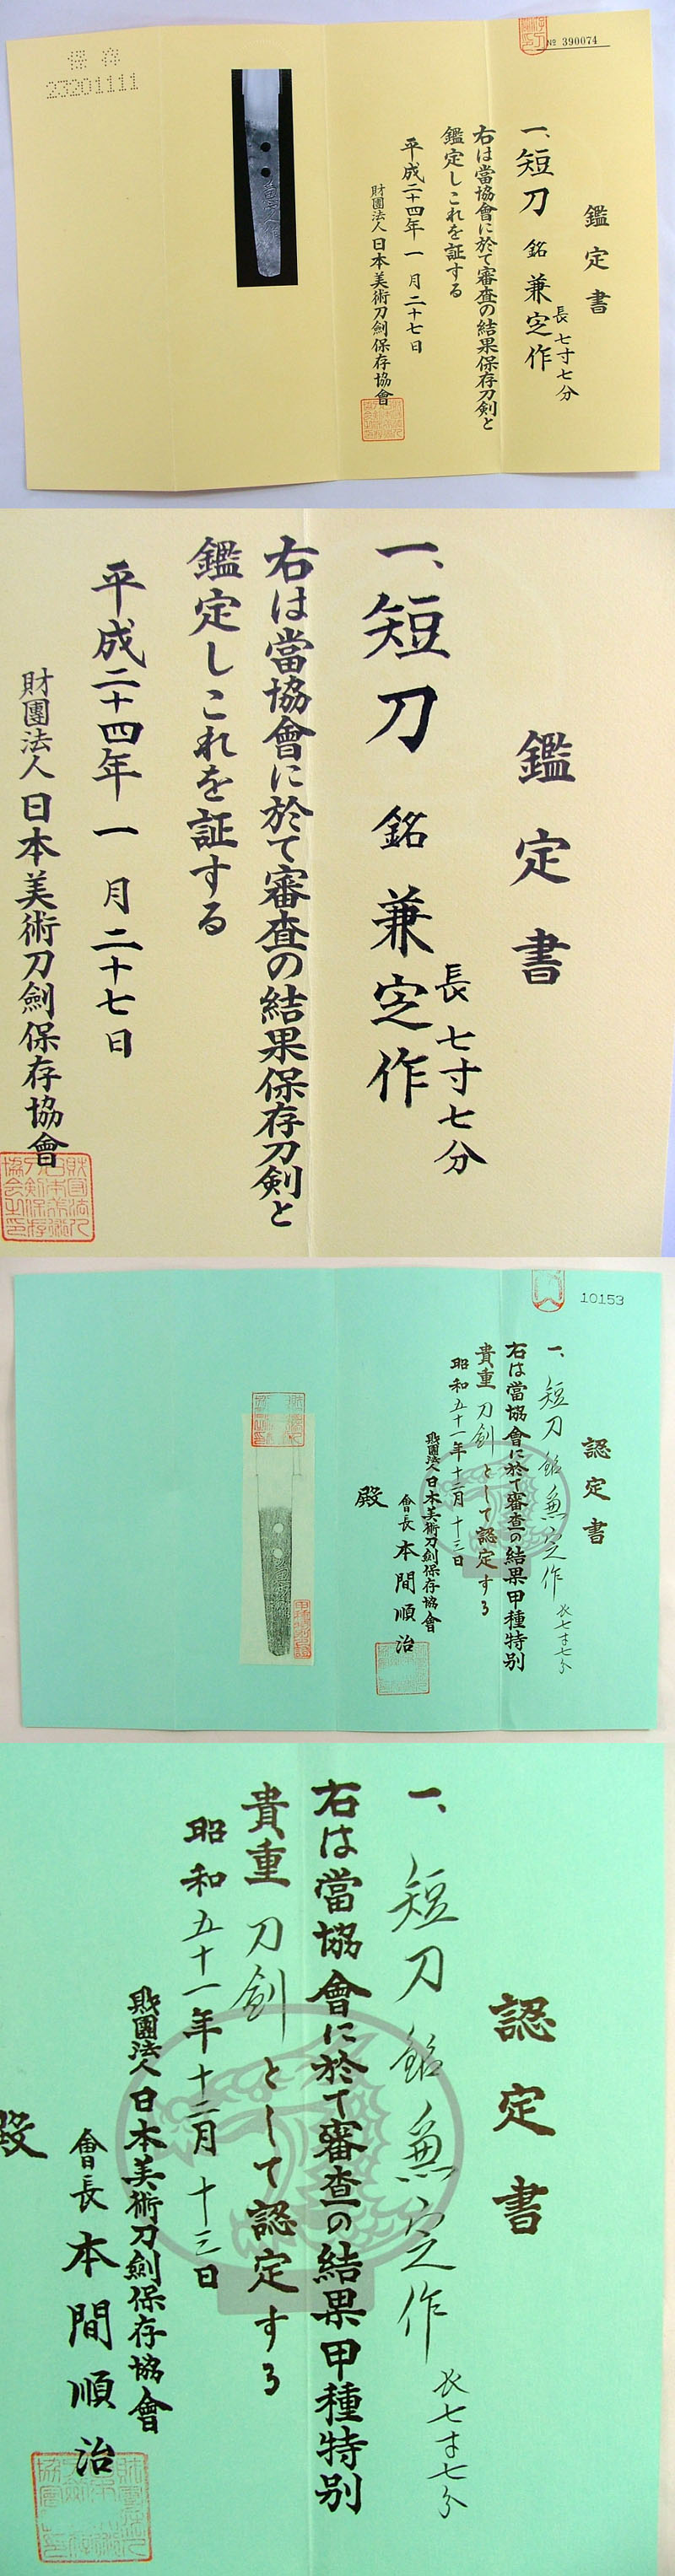 保存
23201111
№ 390074
鑑定書
一、短刀 銘 兼㝎作
長 七寸七分
右は當協會に於て審査の結果保存刀剣と
鑑定しこれを証する
平成二十四年 一 月 二十七日
財團法人 日本美術刀劍保存協會
鑑定書
一、短刀 銘 兼㝎作
長 七寸七分
右は當協會に於て審査の結果保存刀剣と
鑑定しこれを証する
平成二十四年 一 月 二十七日
財團法人 日本美術刀劍保存協會
10153
認定書
一、短刀 銘 兼㝎作 長七寸七分
右は當協會に於て審査の結果甲種特別
貴重 刀剣 として認定する
昭和五十一年十二月 十三日
財團法人 日本美術刀劍保存協會
會長 本間順治
殿
認定書
一、短刀 銘 兼㝎作 長七寸七分
右は當協會に於て審査の結果甲種特別
貴重 刀剣 として認定する
昭和五十一年十二月 十三日
財團法人 日本美術刀劍保存協會
會長 本間順治
殿